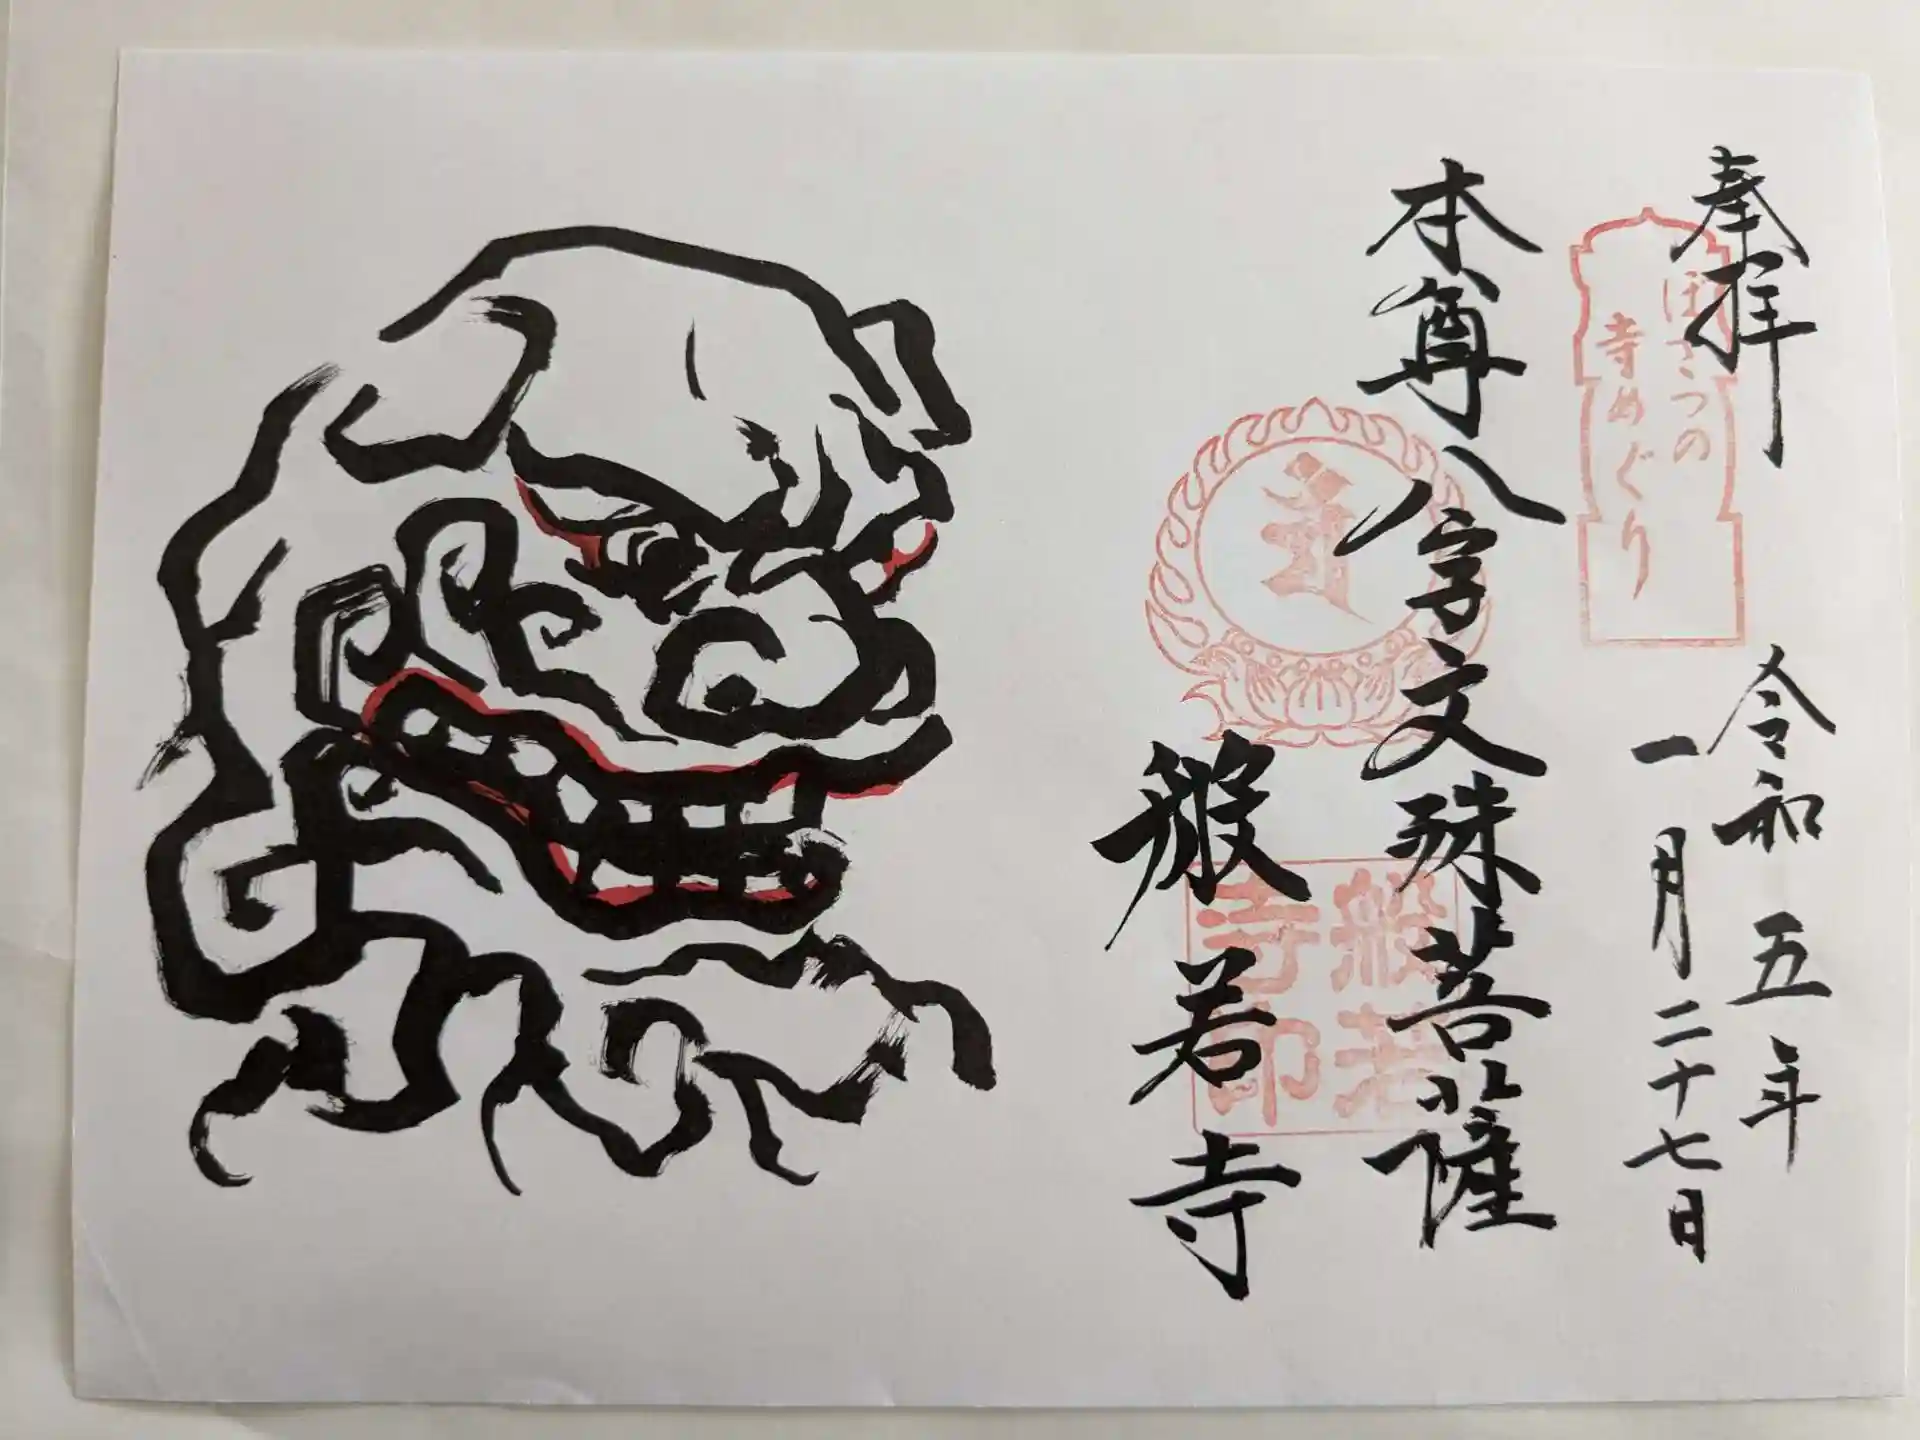 奉拝
ぼさつの
寺めぐり
令和五年
一月二十七日
本尊八字文殊菩薩
般若寺
般若
寺印